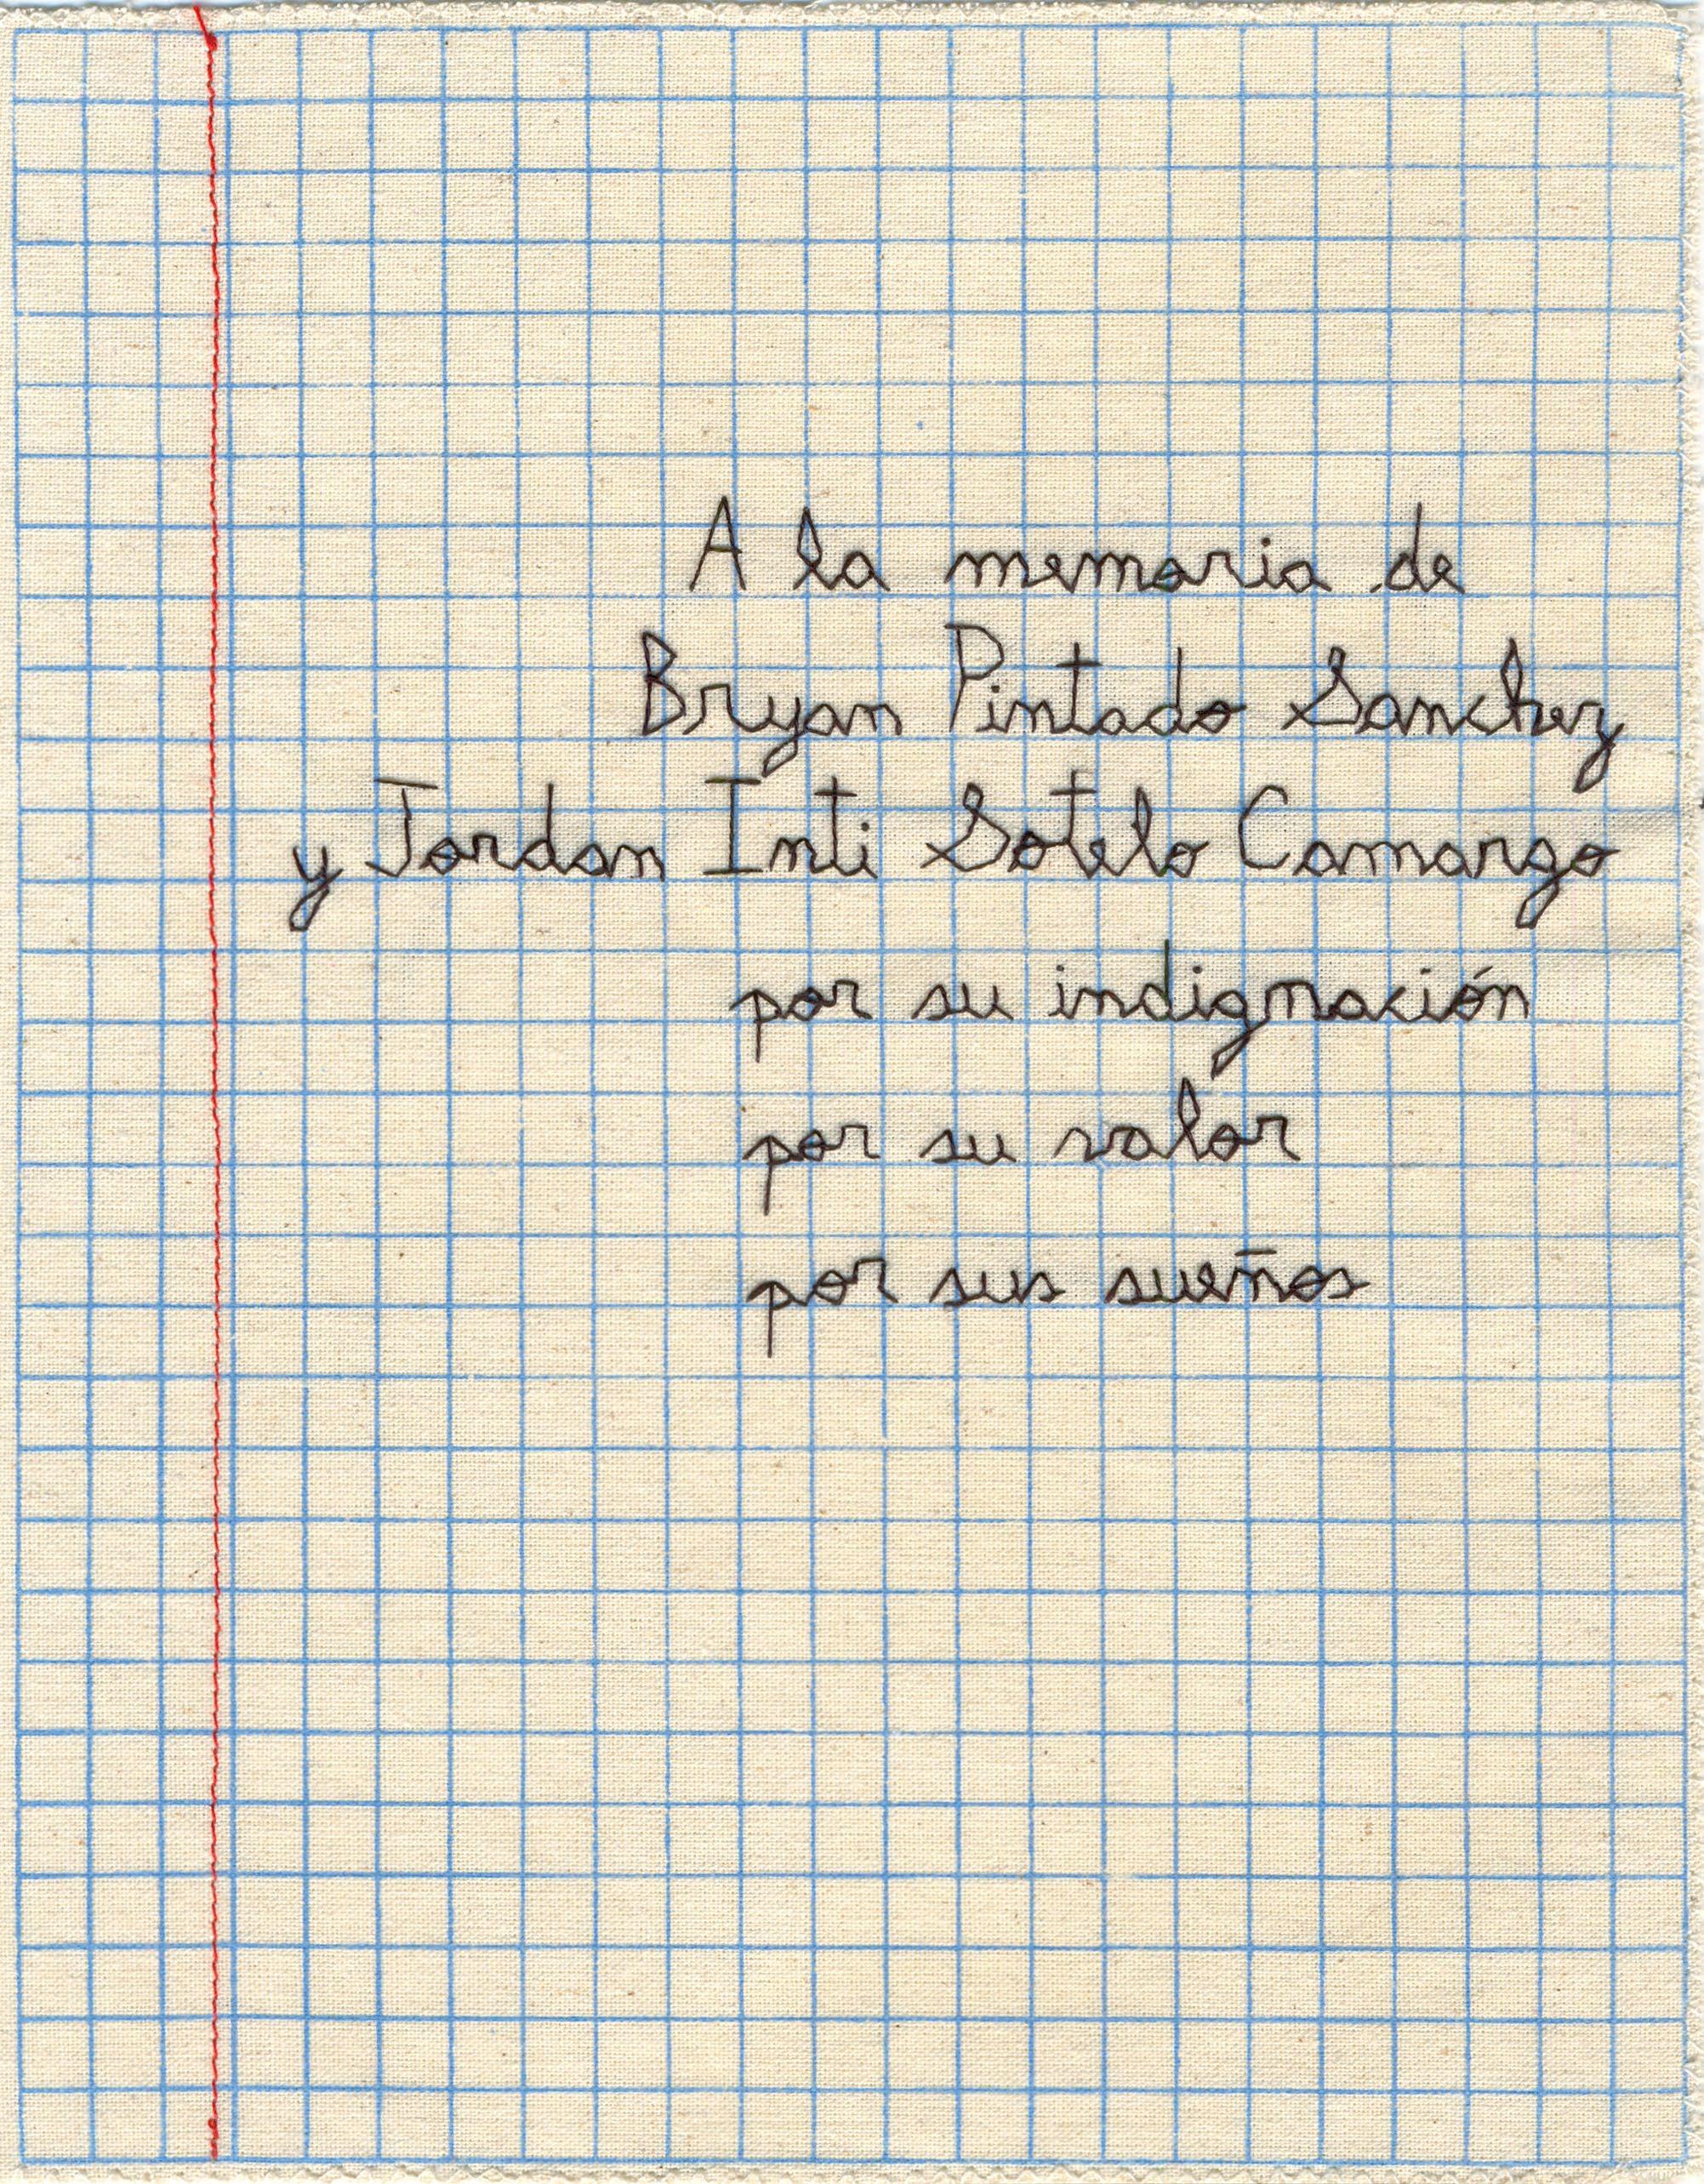 A la memoria de
Bryan Pintado Sanchez
y Jordan Inti Sotelo Camargo
por su indignación
por su valor
por sus sueños